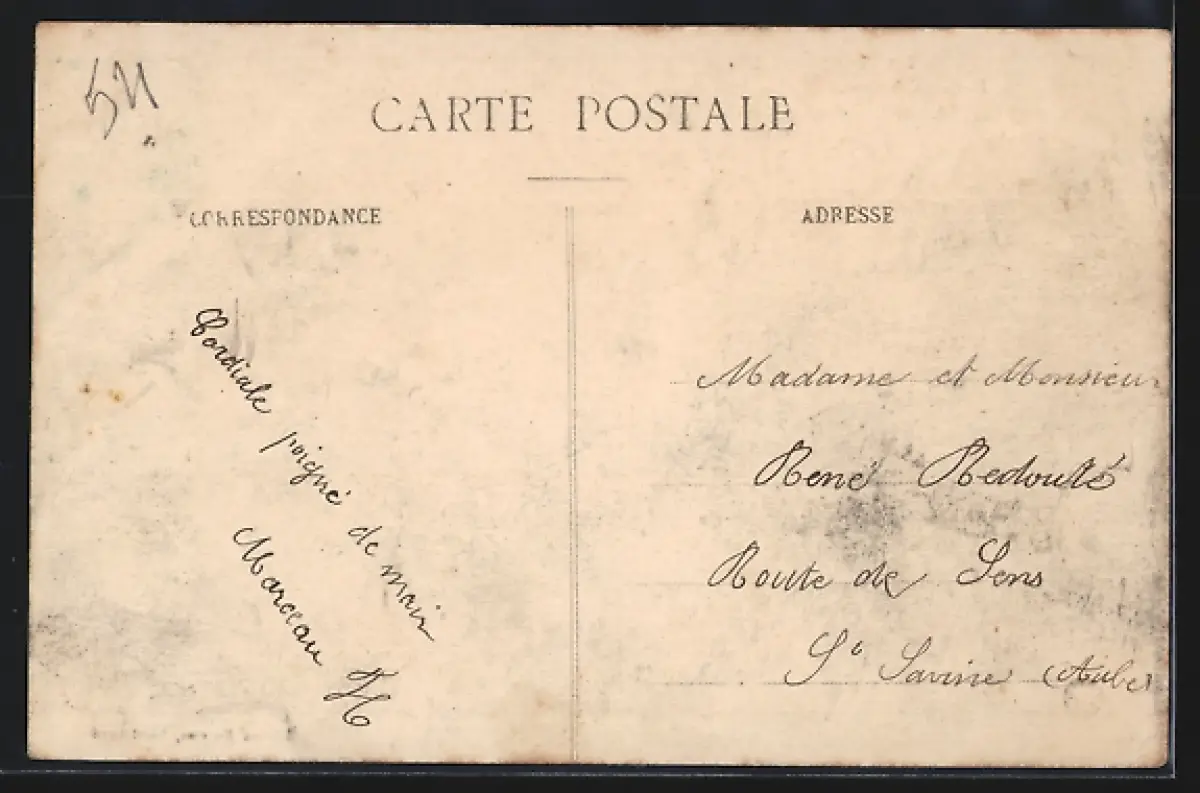 54
CARTE POSTALE
CORRESPONDANCE
ADRESSE
Cordiale poigné de main
Marceau H
Madame et Monsieur
René Redouté
Route de Sens
Ste Savine (Aube)